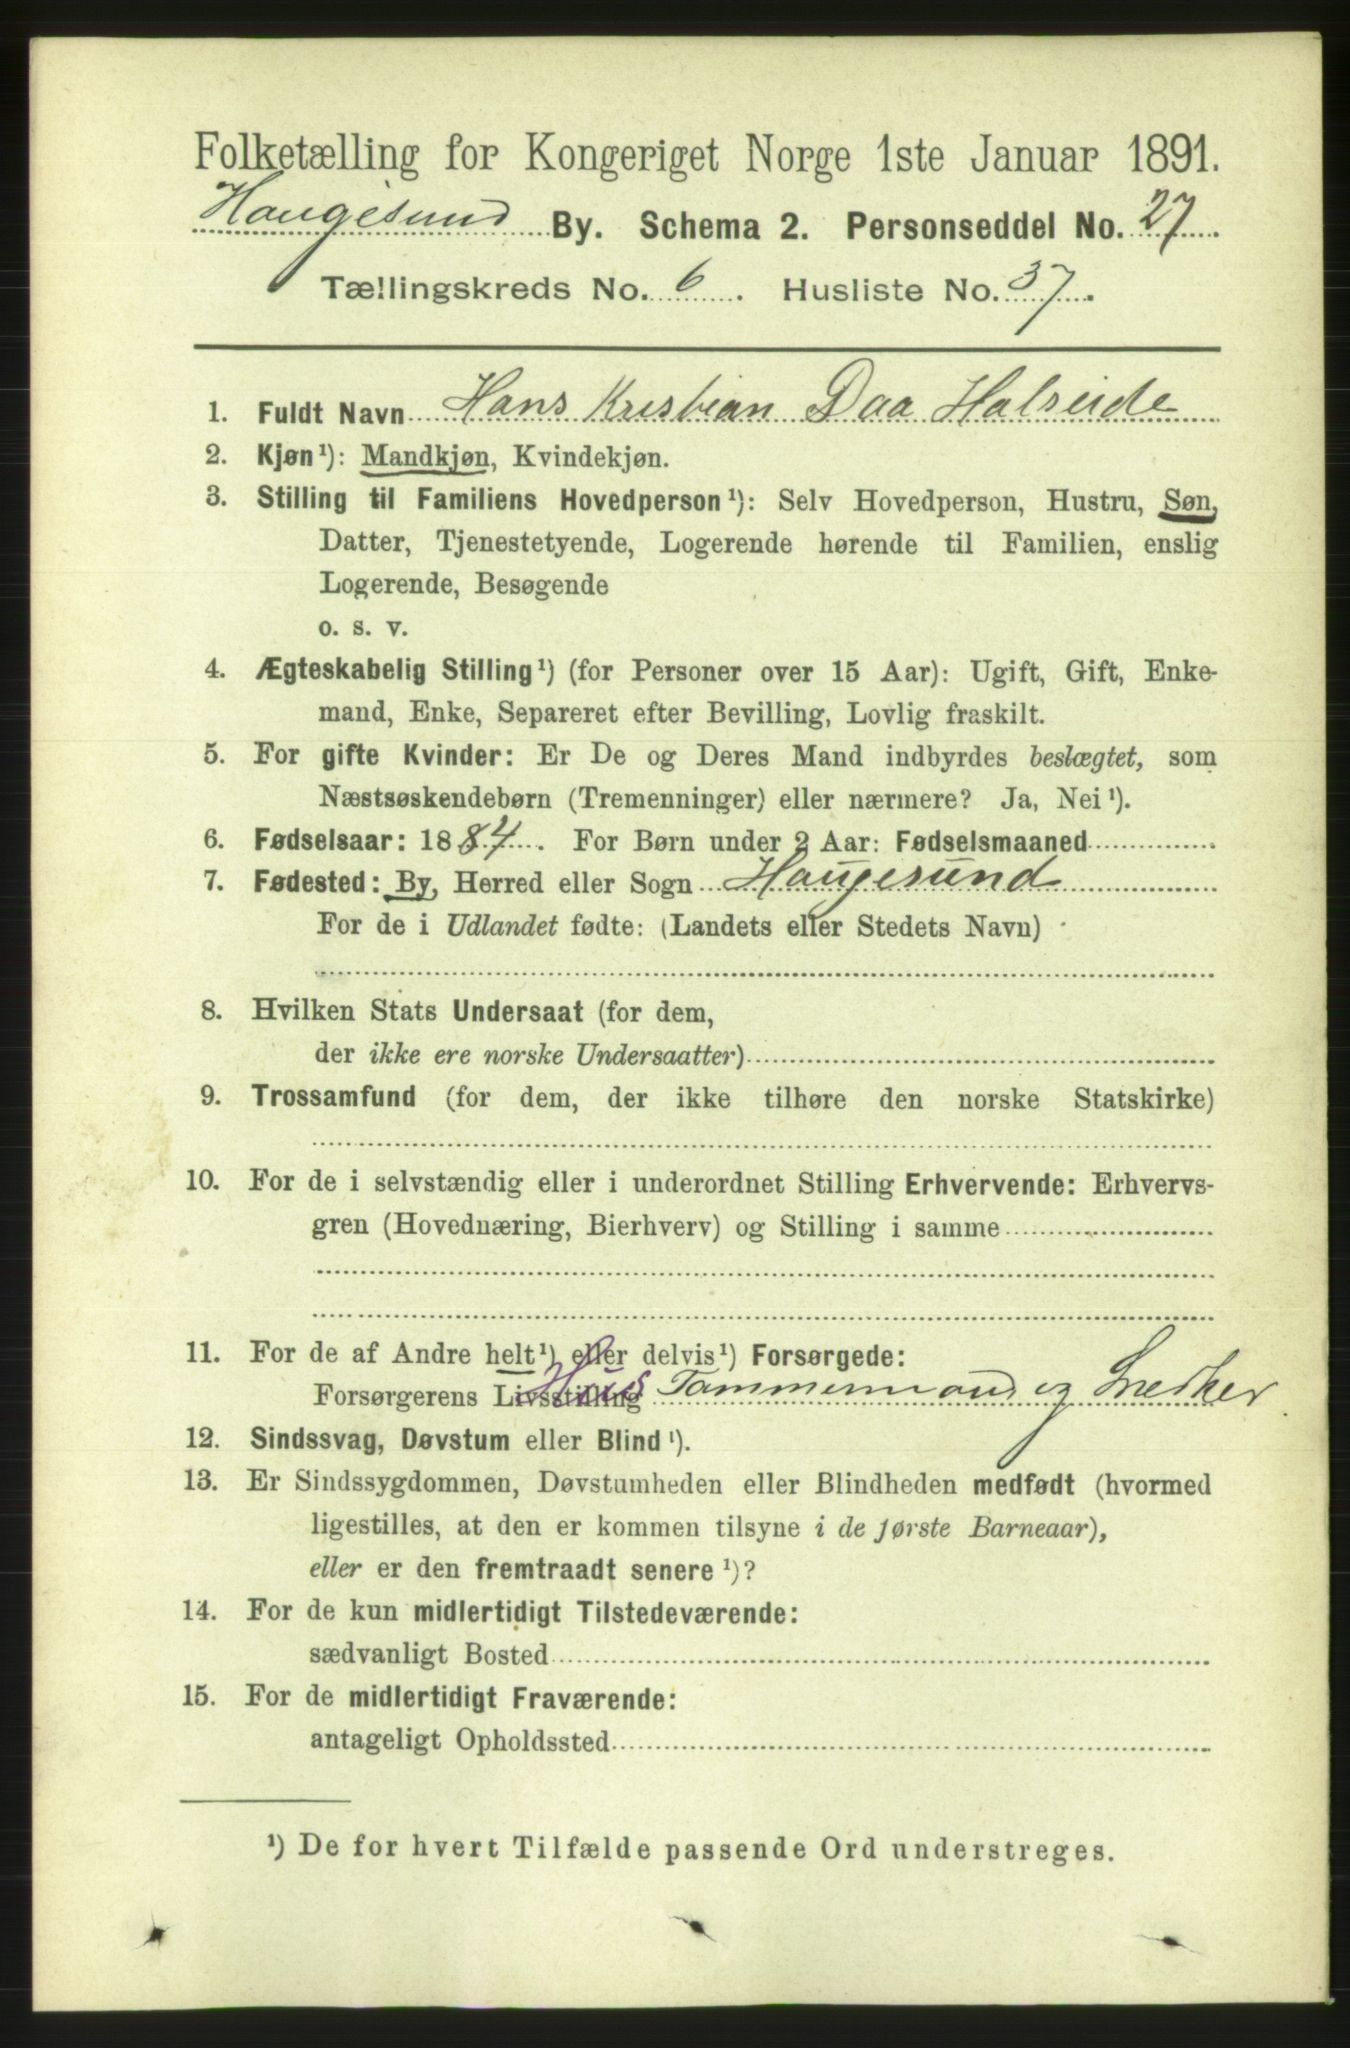 Folketælling for Kongeriget Norge 1ste Januar 1891.
Haugesund By. Schema 2. Personseddel No. 27.
Tællingskreds No. 6. Husliste No. 37.
1. Fuldt Navn Hans Kristian Daa Halseide
2. Kjøn¹): Mandkjøn, Kvindekjøn.
3. Stilling til Familiens Hovedperson¹): Selv Hovedperson, Hustru, Søn,
Datter, Tjenestetyende, Logerende hørende til Familien, enslig
Logerende, Besøgende
o. s. v.
4. Ægteskabelig Stilling¹) (for Personer over 15 Aar): Ugift, Gift, Enke-
mand, Enke, Separeret efter Bevilling, Lovlig fraskilt.
5. For gifte Kvinder: Er De og Deres Mand indbyrdes beslægtet, som
Næstsøskendebørn (Tremenninger) eller nærmere? Ja, Nei¹).
6. Fødselsaar: 1884. For Børn under 2 Aar: Fødselsmaaned
7. Fødested: By, Herred eller Sogn Haugesund
For de i Udlandet fødte: (Landets eller Stedets Navn)
8. Hvilken Stats Undersaat (for dem,
der ikke ere norske Undersaatter)
9. Trossamfund (for dem, der ikke tilhøre den norske Statskirke)
10. For de i selvstændig eller i underordnet Stilling Erhvervende: Erhvervs-
gren (Hovednæring, Bierhverv) og Stilling i samme
11. For de af Andre helt¹) eller delvis¹) Forsørgede:
Forsørgerens Livsstilling Hus Tømmermand og Snedker
12. Sindssvag, Døvstum eller Blind¹).
13. Er Sindssygdommen, Døvstumheden eller Blindheden medfødt (hvormed
ligestilles, at den er kommen tilsyne i de første Barneaar),
eller er den fremtraadt senere¹)?
14. For de kun midlertidigt Tilstedeværende:
sædvanligt Bosted
15. For de midlertidigt Fraværende:
antageligt Opholdssted
¹) De for hvert Tilfælde passende Ord understreges.